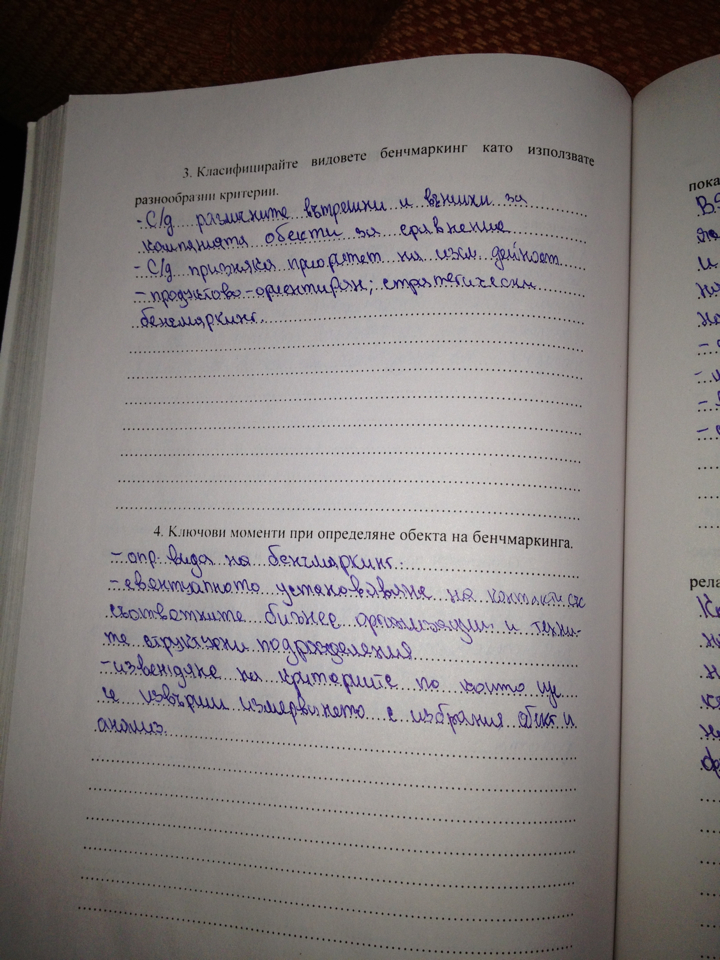 3. Класифицирайте видовете бенчмаркинг като използвате
разнообразни критерии.
- С/д различните вътрешни и външни за
компанията обекти за сравнение
- С/д признака приоритет на изсл. дейност
- продуктово-ориентиран; стратегически
бенчмаркинг.
4. Ключови моменти при определяне обекта на бенчмаркинга.
- опр. вида на бенчмаркинг.
- евентуалното установяване на контакти със
съответните бизнес организации и техни-
те структурни подразделения
- извеждане на критерийте по които ще
се извърши измерването с избрания обект и
анализ.
пока
и
рела